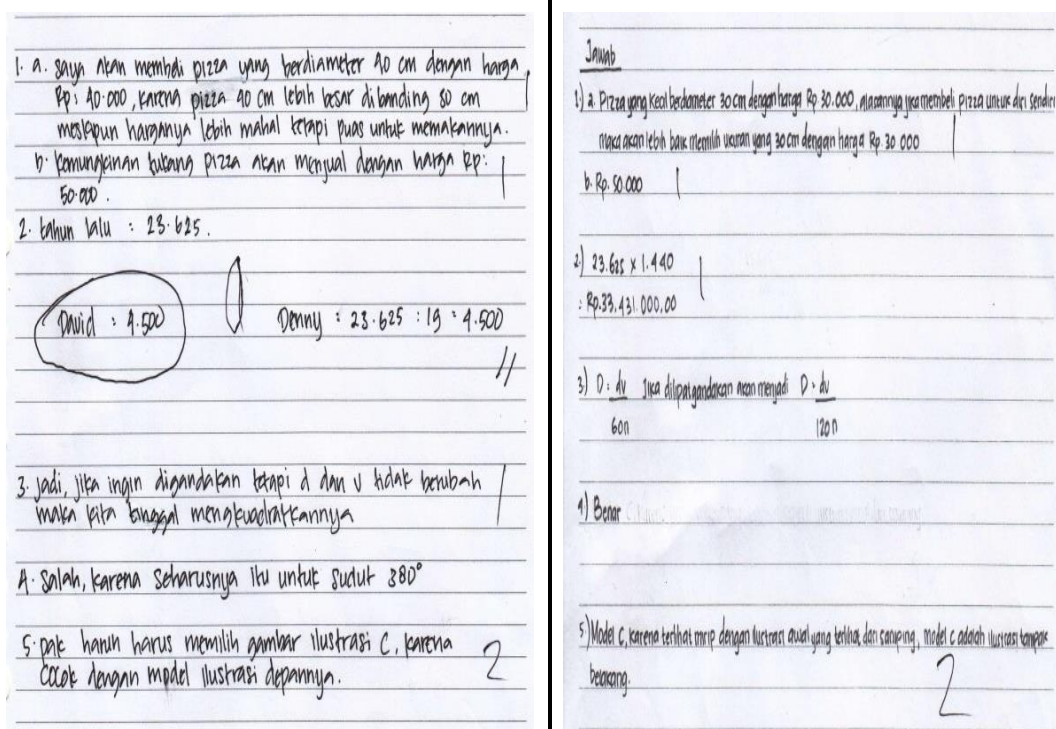 1. a. saya akan membeli pizza yang berdiameter 40 cm dengan harga
Rp: 40.000, karena pizza 40 cm lebih besar dibanding 30 cm
meskipun harganya lebih mahal tetapi puas untuk memakannya.
b. kemungkinan tukang pizza akan menjual dengan harga Rp:
50.000.
2. tahun lalu : 23.625.
David : 4.500
Denny : 23.625 : 19 = 4.500
3. jadi, jika ingin digandakan tetapi d dan v tidak berubah
maka kita tinggal mengkuadratkannya
4. Salah, karena seharusnya itu untuk sudut 380°
5. pak hanin harus memilih gambar ilustrasi C, karena
cocok dengan model ilustrasi depannya.
2
Jawab
1.) a. Pizza yang kecil berdiameter 30 cm dengan harga Rp 30.000, alasannya jika membeli pizza untuk diri sendiri
maka akan lebih baik memilih ukuran yang 30 cm dengan harga Rp. 30 000
b. Rp. 50.000
2.) 23.625 x 1.440
: Rp.33.431.000,00
3.) D : dv Jika dilipatgandakan akan menjadi D : dv
60n 120n
4.) Benar
5.) Model C, karena terlihat mirip dengan ilustrasi awal yang terlihat dari samping, model c adalah ilustrasi tampak
belakang.
2